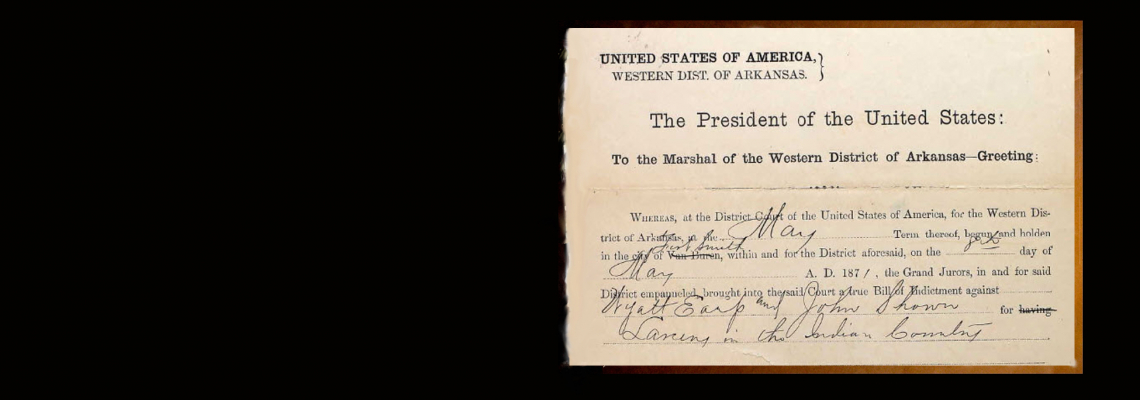 UNITED STATES OF AMERICA,}
WESTERN DIST. OF ARKANSAS.
The President of the United States:
To the Marshal of the Western District of Arkansas—Greeting:
WHEREAS, at the District Court of the United States of America, for the Western Dis-
trict of Arkansas, in the May Term thereof, begun and holden
Fort Smith
in the city of Van Buren, within and for the District aforesaid, on the day of
May A. D. 1871, the Grand Jurors, in and for said
District empanneled, brought into the said Court a true Bill of Indictment against
Wyatt Earp and John Shown for having
Larceny in the Indian Country